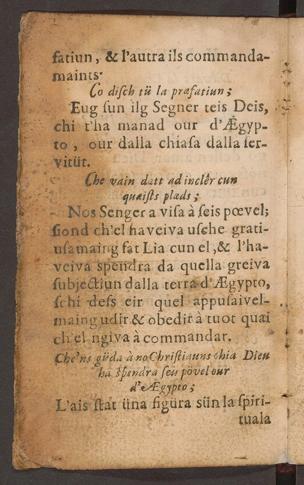 fatiun, & l'autra ils commanda-
maints.
Co disch tü la præfatiun;
Eug sun ilg Segner teis Deis,
chi t'ha manad our d'Ægyp-
to, our dalla chiasa dalla ser-
vitüt.
Che vain datt ad incler cun
quaists plæds;
Nos Senger a visa à seis pœvel;
siond ch'el haveiva usche grati-
usamaing fat Lia cun el, & l'ha-
veiva spendra da quella greiva
subjectiun dalla terra d'Ægypto,
schi dess eir quel appusaivel-
maing udir & obedir à tuot quai
ch'el ngiva à commandar.
Che'ns güda à no Christiauns chia Dieu
ha spendra seu pövel our
d'Ægypto;
L'ais stat üna figura sün la spiri-
tuala